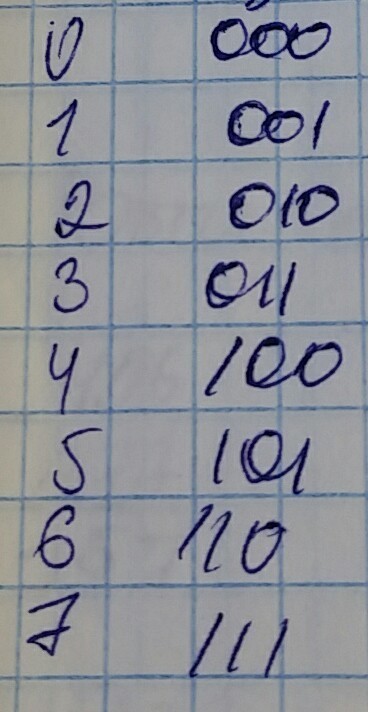 0 000
1 001
2 010
3 011
4 100
5 101
6 110
7 111